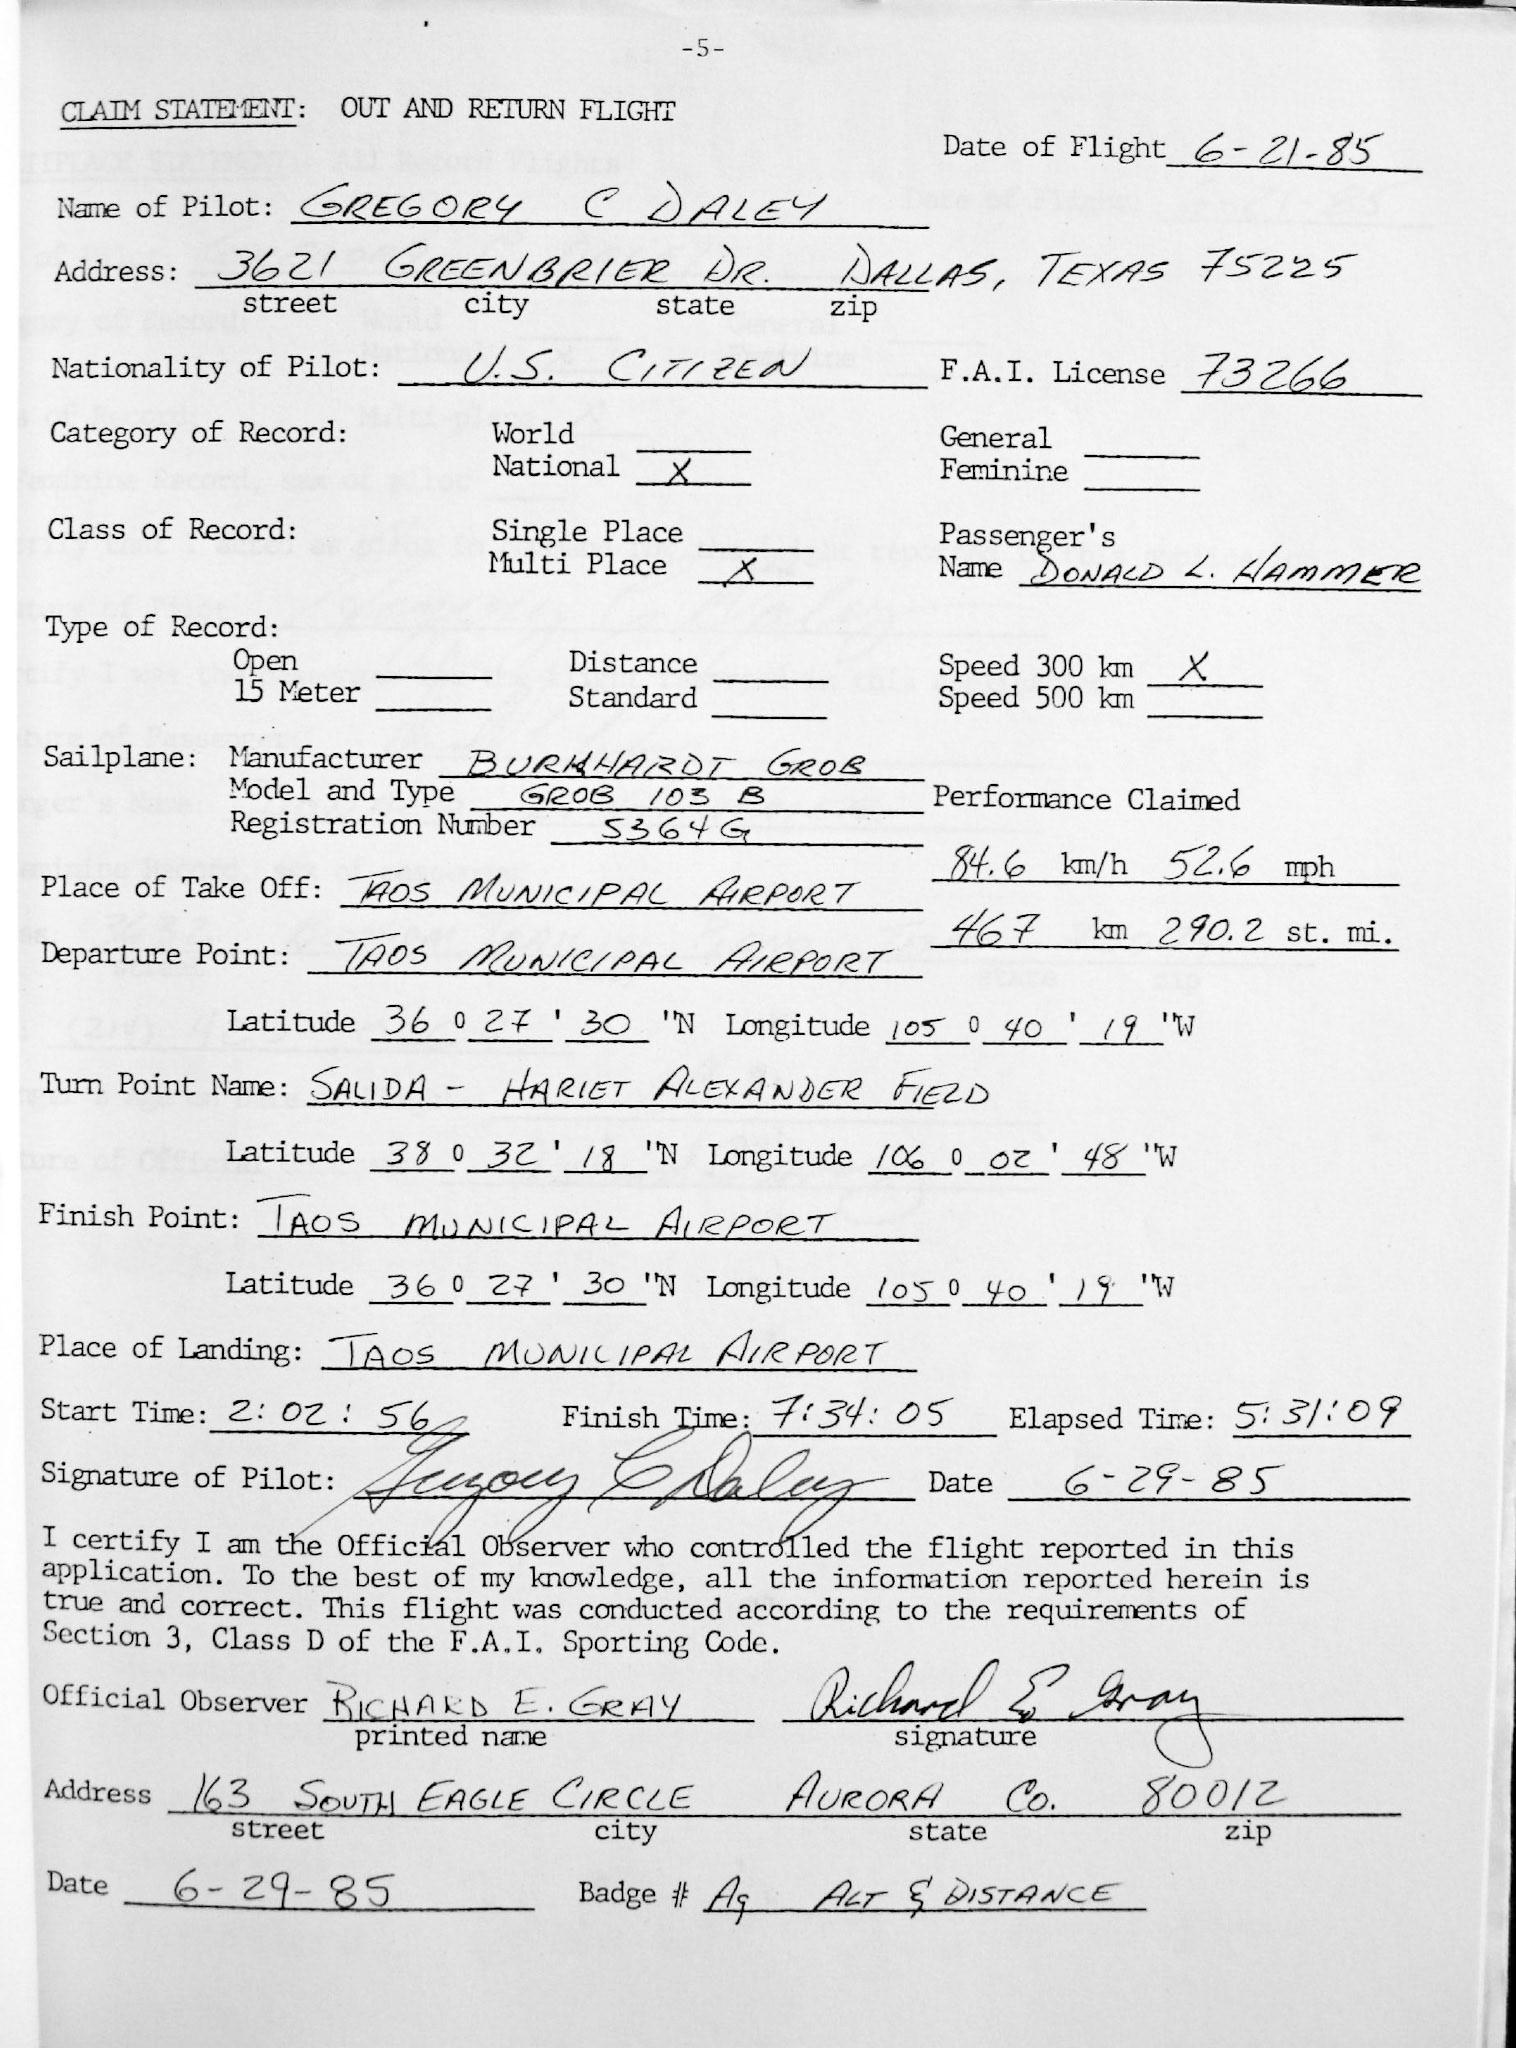 -5-
CLAIM STATEMENT: OUT AND RETURN FLIGHT
Date of Flight 6-21-85
Name of Pilot: GREGORY C DALEY
Address: 3621 GREENBRIER DR. DALLAS, TEXAS 75225
street city state zip
Nationality of Pilot: U.S. CITIZEN F.A.I. License 73266
Category of Record: World General
National X Feminine
Class of Record: Single Place Passenger's
Multi Place X Name DONALD L. HAMMER
Type of Record:
Open Distance Speed 300 km X
15 Meter Standard Speed 500 km
Sailplane: Manufacturer BURKHARDT GROB
Model and Type GROB 103 B Performance Claimed
Registration Number 5364G
84.6 km/h 52.6 mph
Place of Take Off: TAOS MUNICIPAL AIRPORT
467 km 290.2 st. mi.
Departure Point: TAOS MUNICIPAL AIRPORT
Latitude 36 0 27 ' 30 "N Longitude 105 0 40 ' 19 "W
Turn Point Name: SALIDA - HARIET ALEXANDER FIELD
Latitude 38 0 32 ' 18 "N Longitude 106 0 02 ' 48 "W
Finish Point: TAOS MUNICIPAL AIRPORT
Latitude 36 0 27 ' 30 "N Longitude 105 0 40 ' 19 "W
Place of Landing: TAOS MUNICIPAL AIRPORT
Start Time: 2:02:56 Finish Time: 7:34:05 Elapsed Time: 5:31:09
Signature of Pilot: Gregory C Daley Date 6-29-85
I certify I am the Official Observer who controlled the flight reported in this
application. To the best of my knowledge, all the information reported herein is
true and correct. This flight was conducted according to the requirements of
Section 3, Class D of the F.A.I. Sporting Code.
Official Observer RICHARD E. GRAY Richard E Gray
printed name signature
Address 163 SOUTH EAGLE CIRCLE AURORA CO. 80012
street city state zip
Date 6-29-85 Badge # Ag ALT & DISTANCE